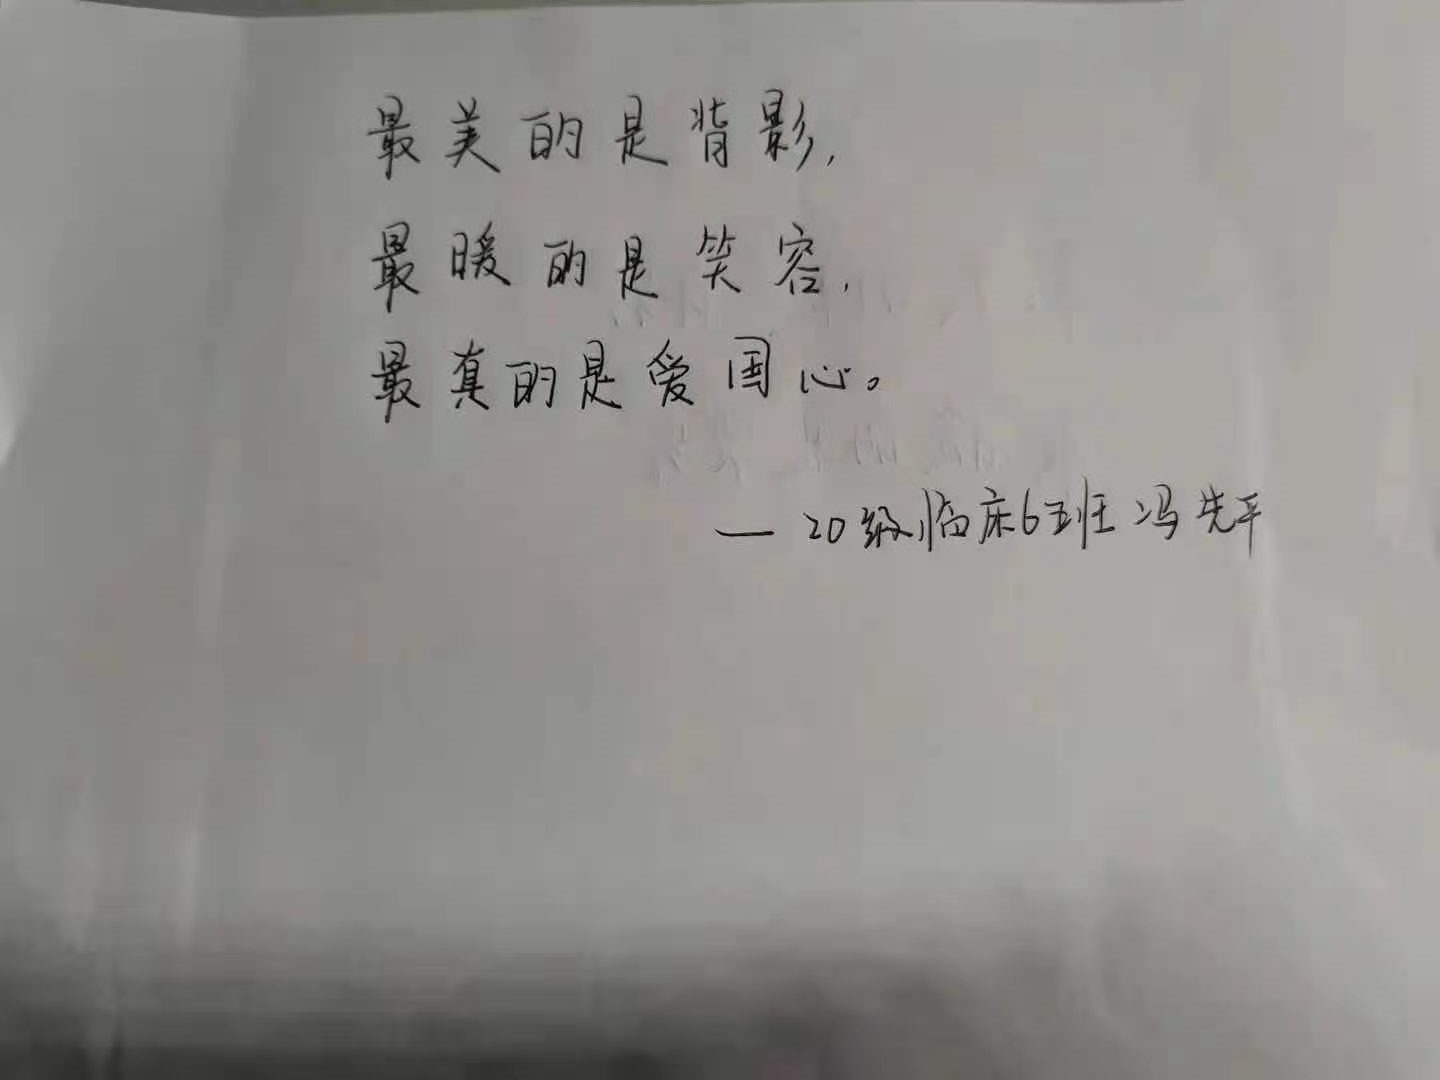 最美的是背影,
最暖的是笑容,
最真的是爱国心。
— 20级临床6班 冯先平